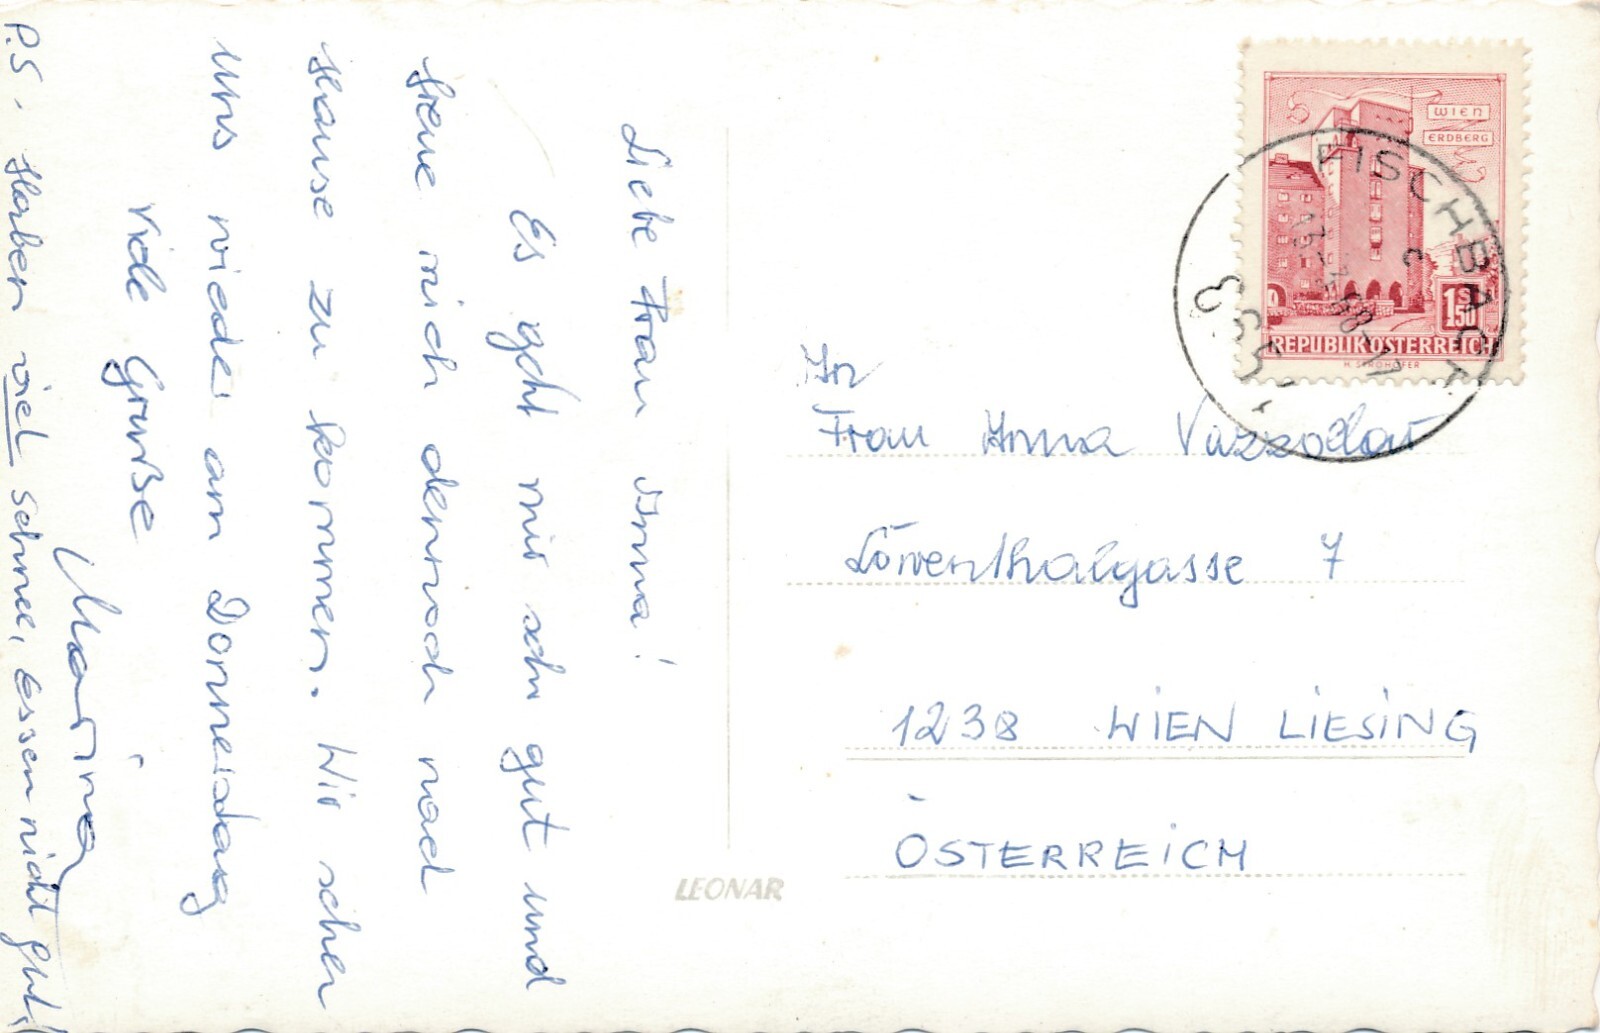 Liebe Frau Anna!
Es geht mir sehr gut und
freue mich dennoch nach
Hause zu kommen. Wir sehen
uns wieder am Donnerstag
Viele Grüße
Marina
P.S. Haben viel Schnee, essen nicht gut!
An
Frau Anna
Löwenthalgasse 7
1238 WIEN LIESING
ÖSTERREICH
LEONAR
WIEN
ERDBERG
1S50
REPUBLIK ÖSTERREICH
H. STROHOFER
FISCHBACH